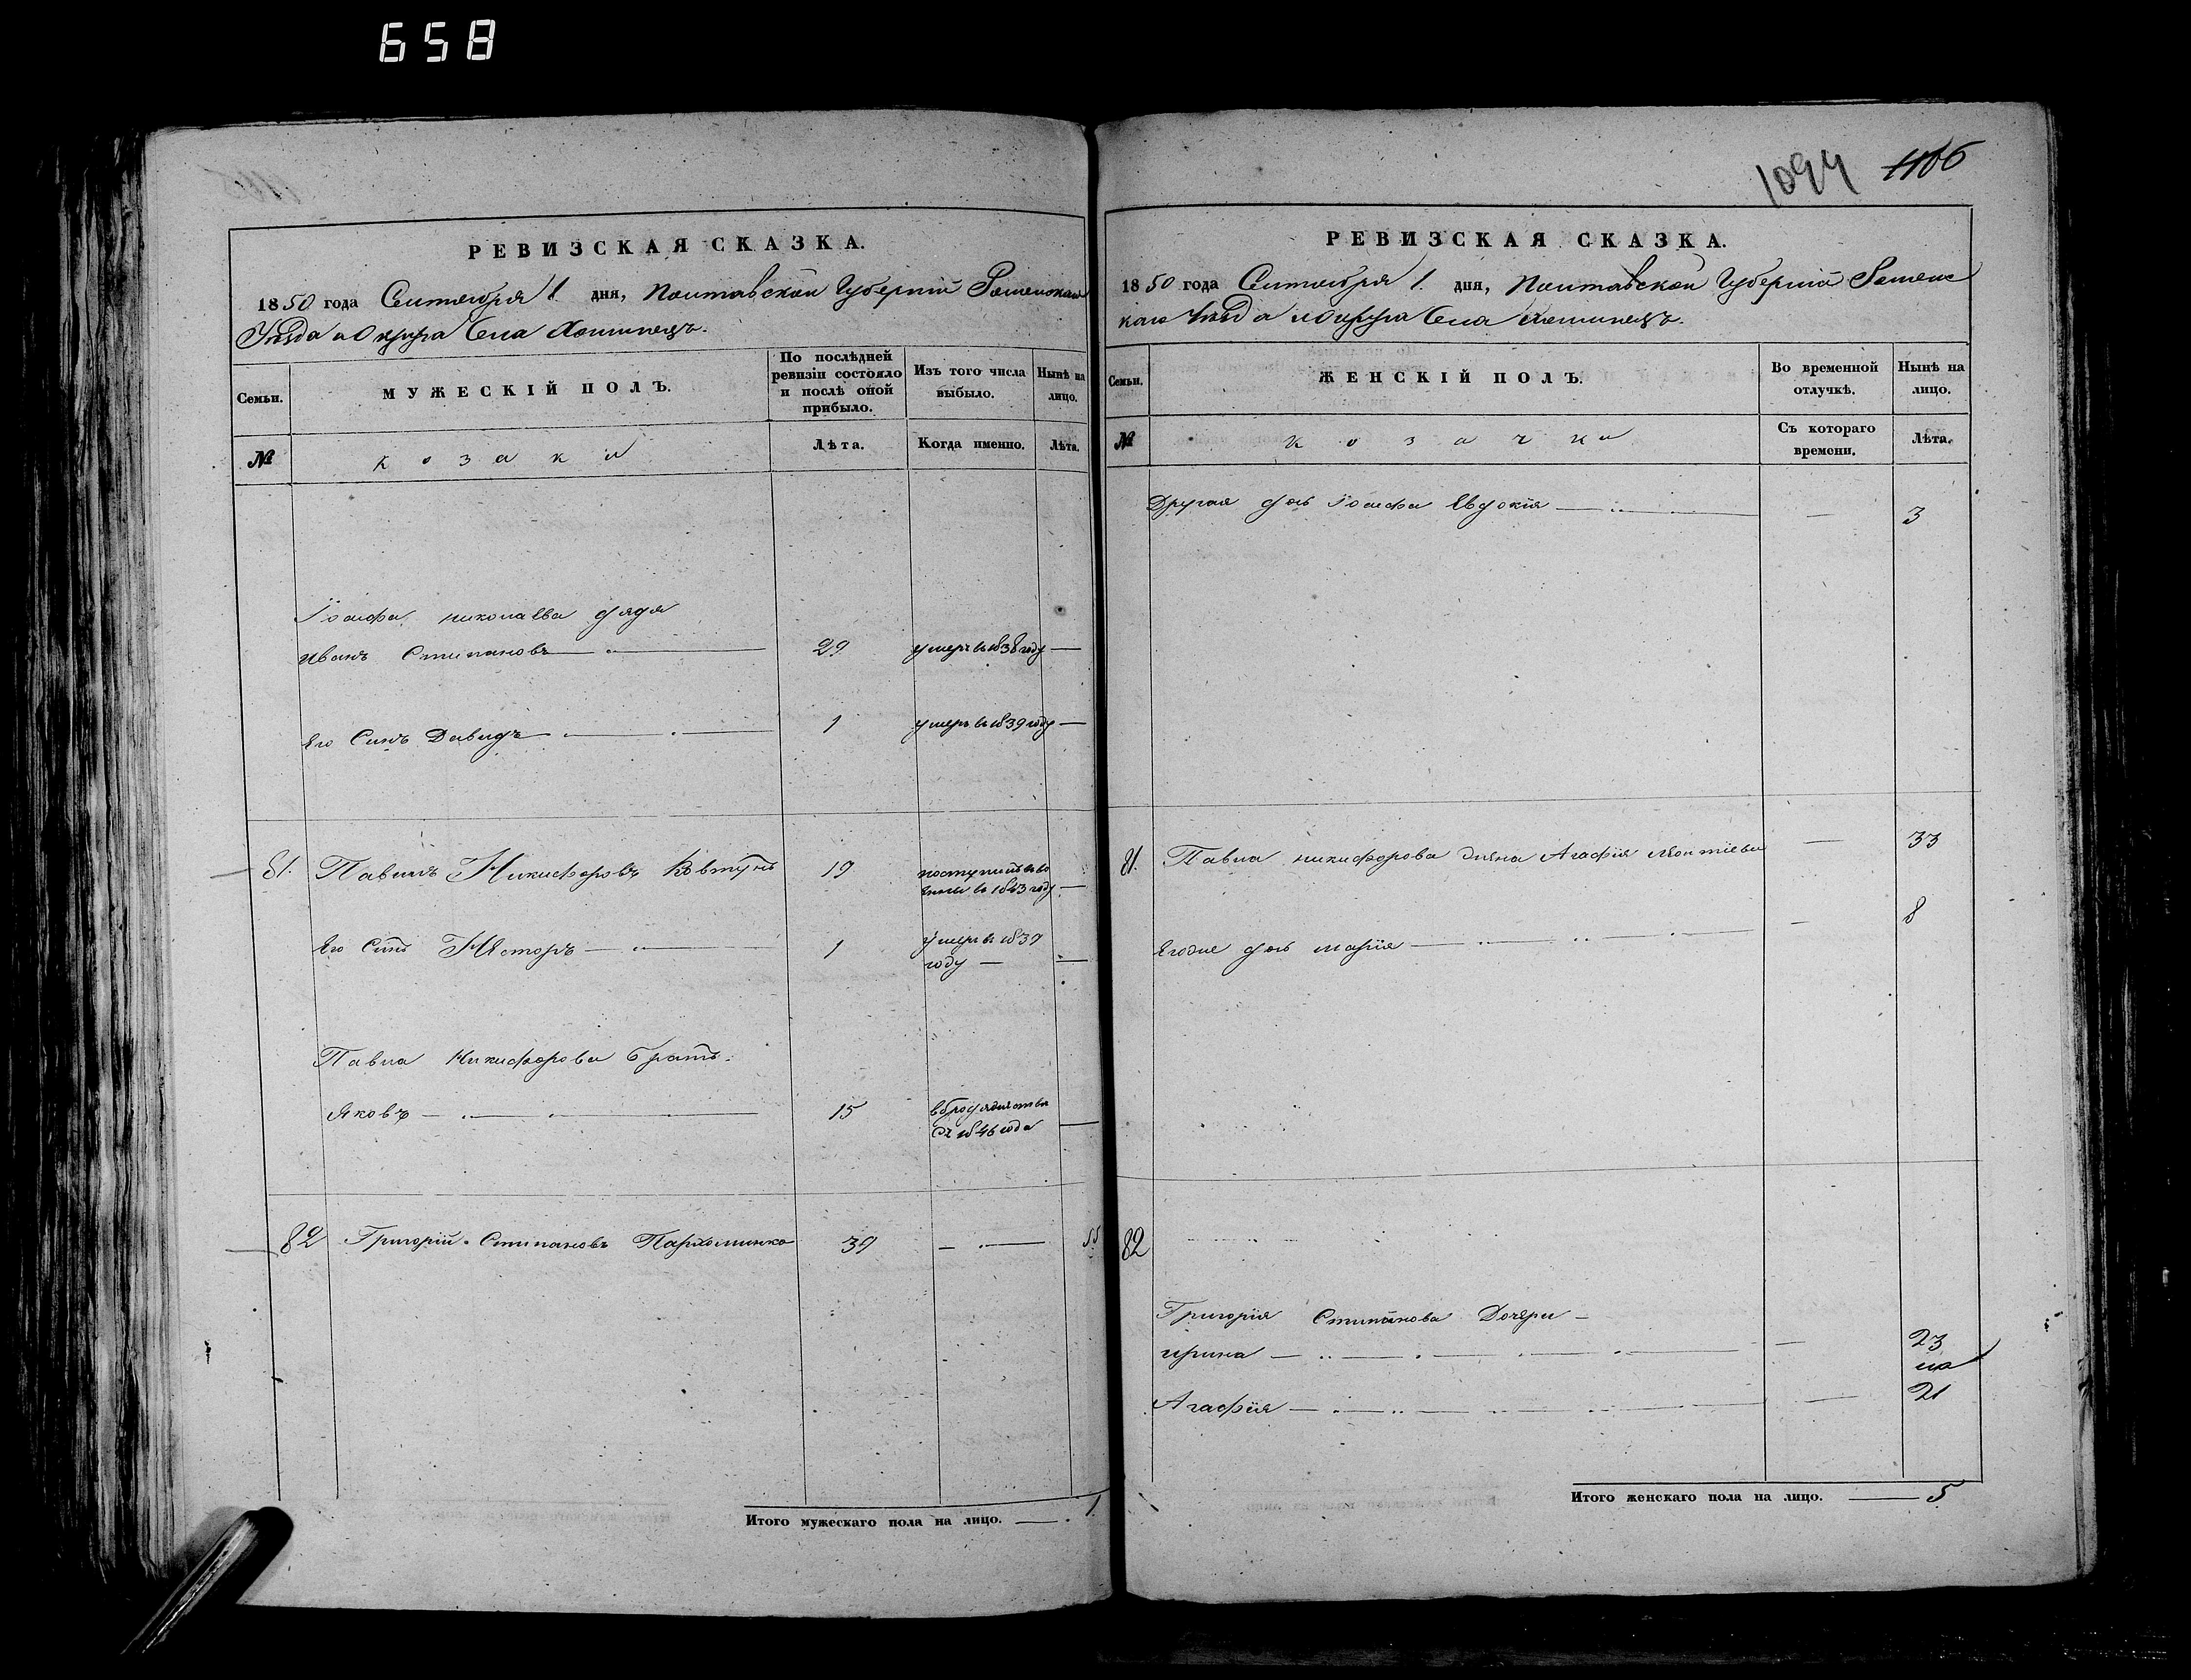 658
РЕВИЗСКАЯ СКАЗКА.
1850 года Сентября 1 дня, Полтавской Губерніи Роменскаго
Уѣзда и Округа Села
Семьи.
МУЖЕСКІЙ ПОЛЪ.
По послѣдней ревизіи состояло и послѣ оной прибыло.
Изъ того числа выбыло.
Нынѣ на лицо.
№
козаки
Лѣта.
Когда именно.
Лѣта.
Іоасафа николаева дядя
Иванъ Степановъ 29 умеръ в 1838 году
Его Синъ Давидъ 1 умеръ в 1839 году
81. Павелъ Никифоровъ Ковтунъ 19 поступилъ в 1843 году
Его Синъ Несторъ 1 умеръ в 1839 году
Павла Никифорова братъ
Яковъ 15 в бродяжестве съ 1846 года
82 Григорій Степановъ Пархоменко 39 55
Итого мужескаго пола на лицо. 1.
1094 1106
РЕВИЗСКАЯ СКАЗКА.
1850 года Сентября 1. дня, Полтавской Губерніи Роменс
каго Уѣзда и Округа Села
Семьи.
ЖЕНСКІЙ ПОЛЪ.
Во временной отлучкѣ.
Нынѣ на лицо.
№
козачки
Съ котораго времени.
Лѣта.
Другая дочь Іоасафа Евдокія 3
81. Павла никифорова жена Агафія Леонтіева 33
Егоже дочь марія 8
82
Григорія Степанова Дочери
ирина 23
Агафія 21
Итого женскаго пола на лицо. 5